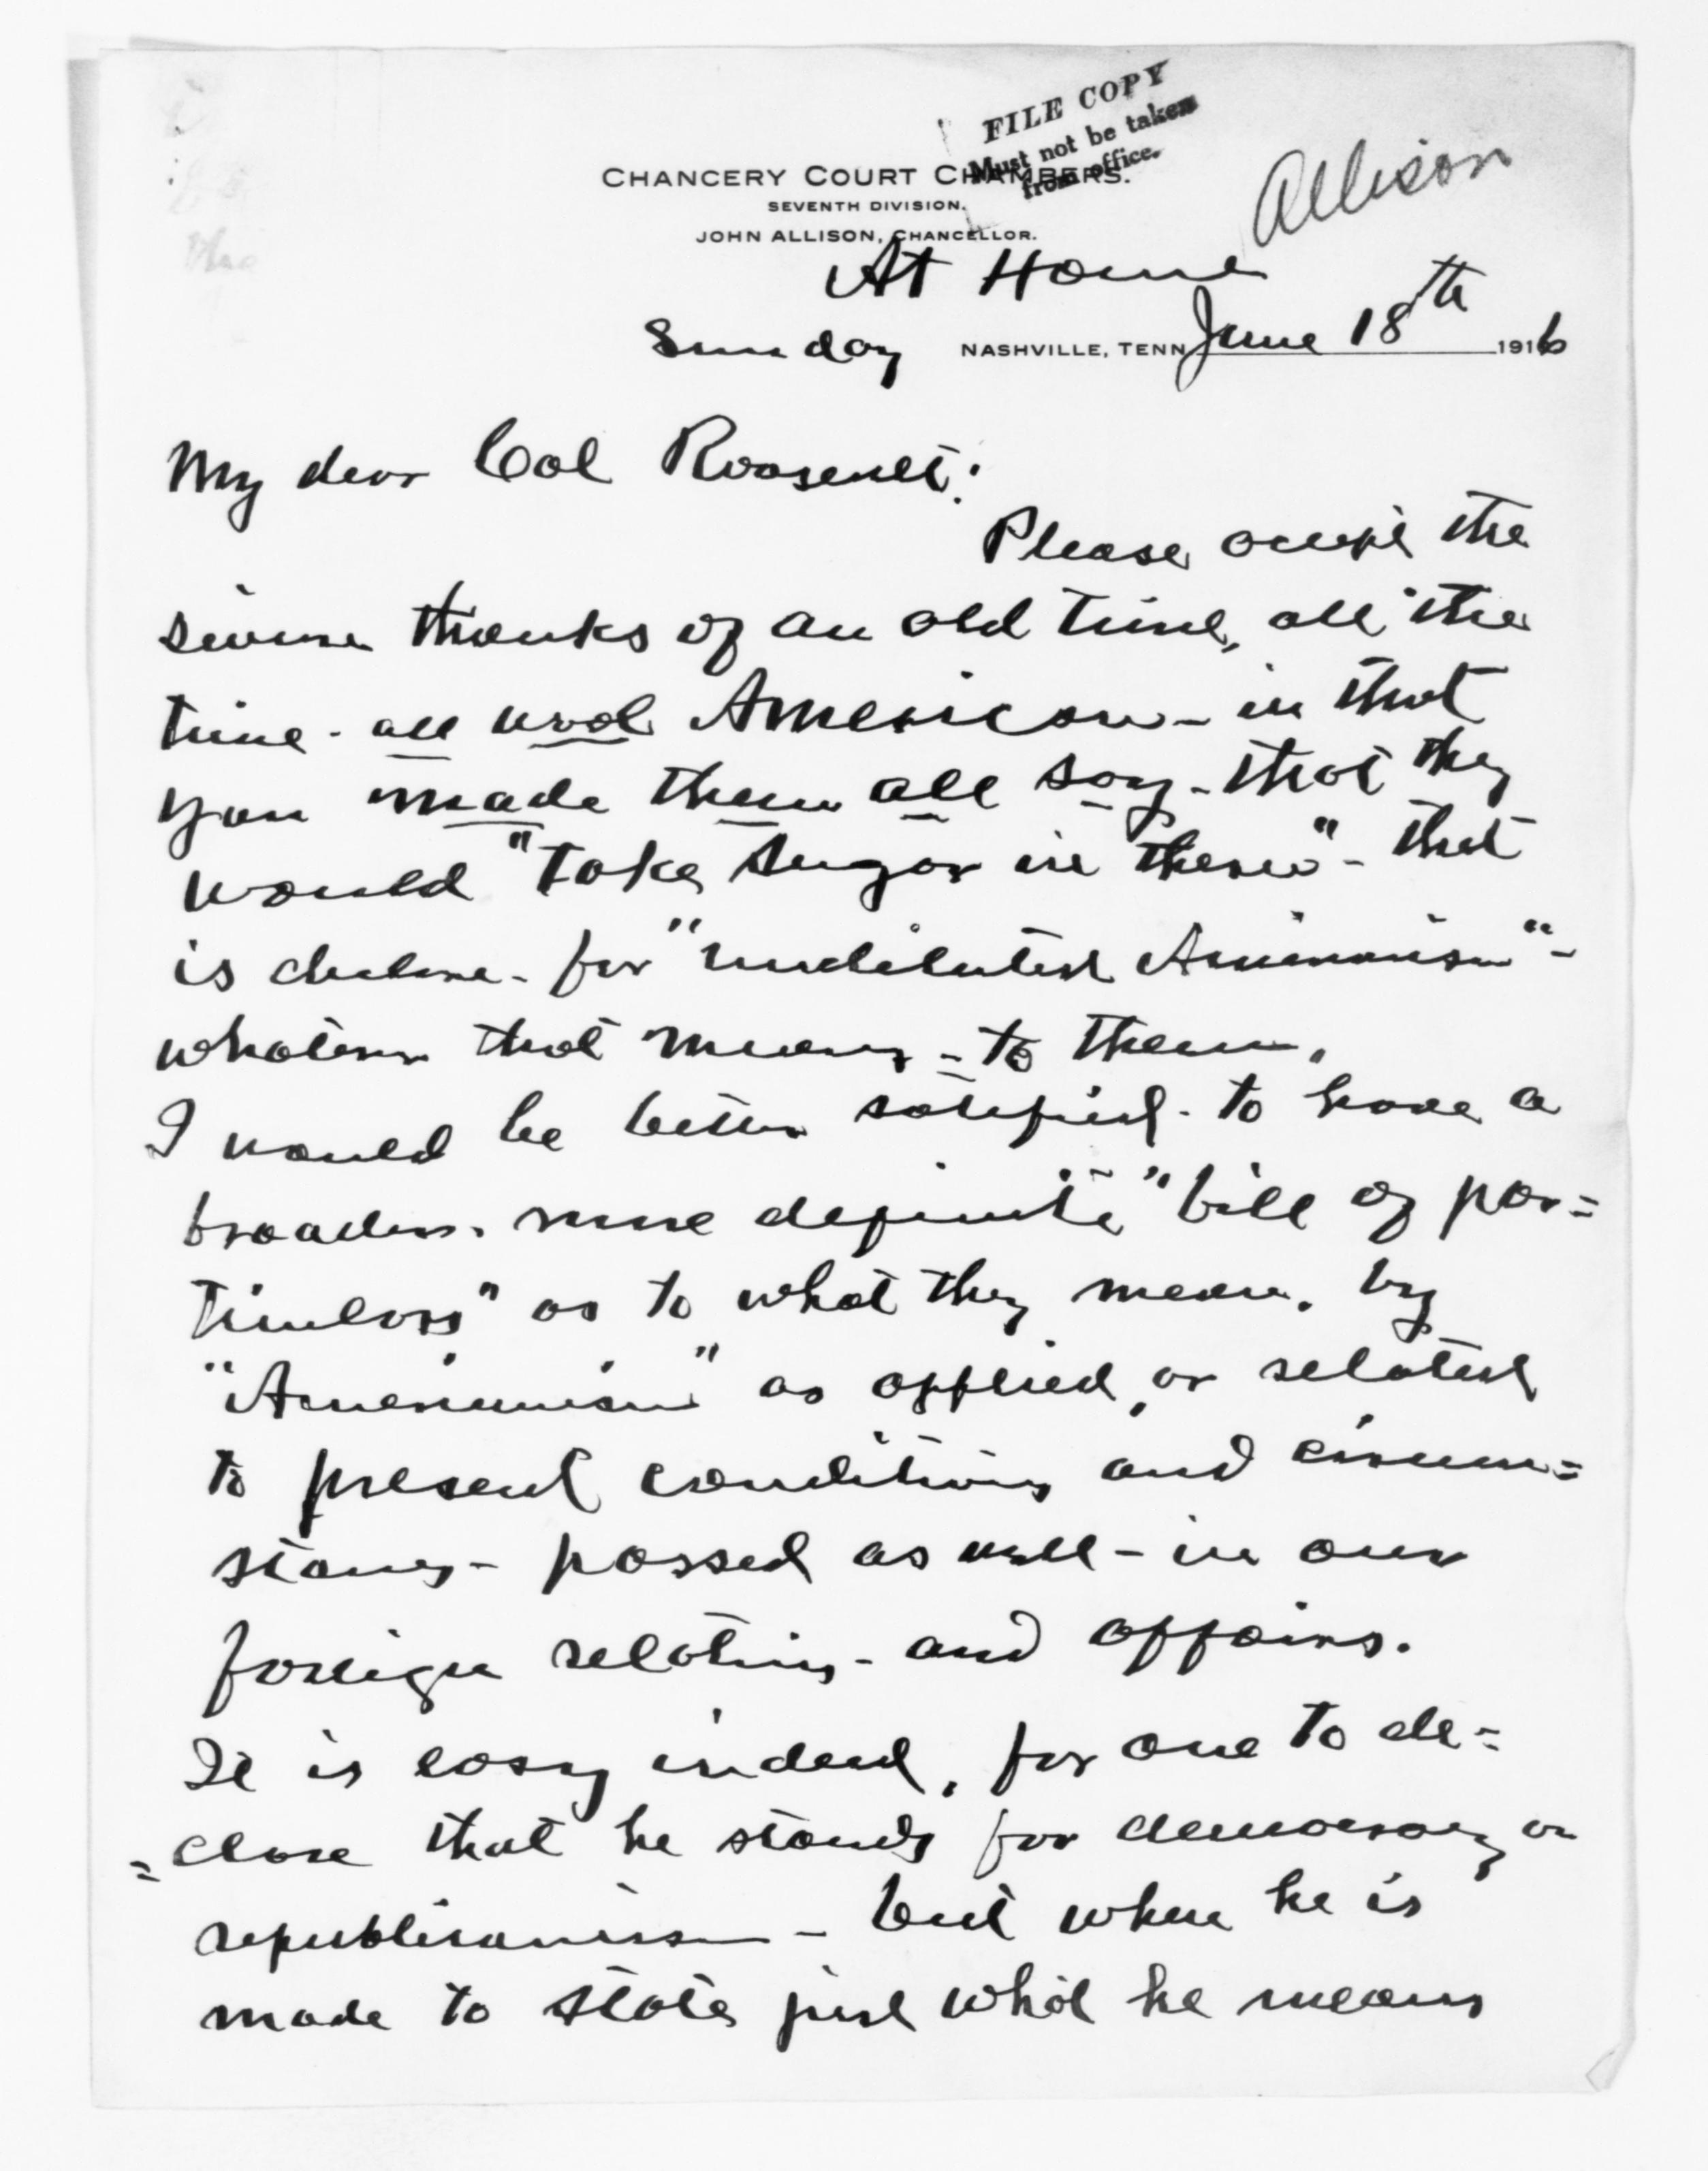 FILE COPY
Must not be taken
from office.
Allison
CHANCERY COURT CHAMBERS.
SEVENTH DIVISION.
JOHN ALLISON, CHANCELLOR.
At Home
Sunday NASHVILLE, TENN June 18th 1916
My dear Col Roosevelt:
Please accept the
sincere thanks of an old time, all the
time - all wool American - in that
you made them all say - that they
would "take sugar in them" - that
is declare - for "undiluted Americanism" -
whatever that means - to them.
I would be better satisfied - to have a
broader, more definite "bill of par=
ticulars" as to what they mean, by
"Americanism" as applied, or related
to present conditions and circum=
stances - passed as well - in our
foreign relations - and affairs.
It is easy indeed, for one to de=
=clare that he stands for democracy or
republicanism - but when he is
made to state just what he means